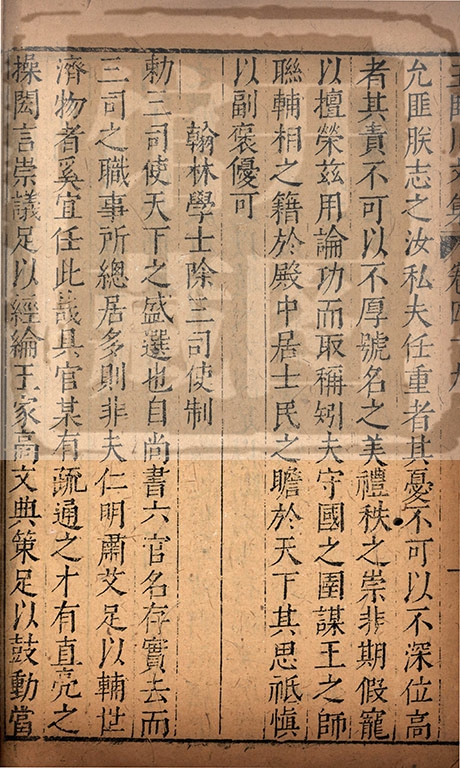 王臨川文集 卷四十九
允匪朕志之汝私夫任重者其憂不可以不深位高
者其責不可以不厚號名之美禮秩之崇非期假寵
以擅榮兹用論功而取稱矧夫守國之圉謀王之師
聯輔相之籍於殿中居士民之瞻於天下其思祗愼
以副褒優可
翰林學士除三司使制
勑三司使天下之盛選也自尚書六官名存實去而
三司之職事所總居多則非夫仁明肅艾足以輔世
濟物者奚宜任此議具官某有疏通之才有直亮之
操閎言崇議足以經綸王家高文典策足以鼓動當